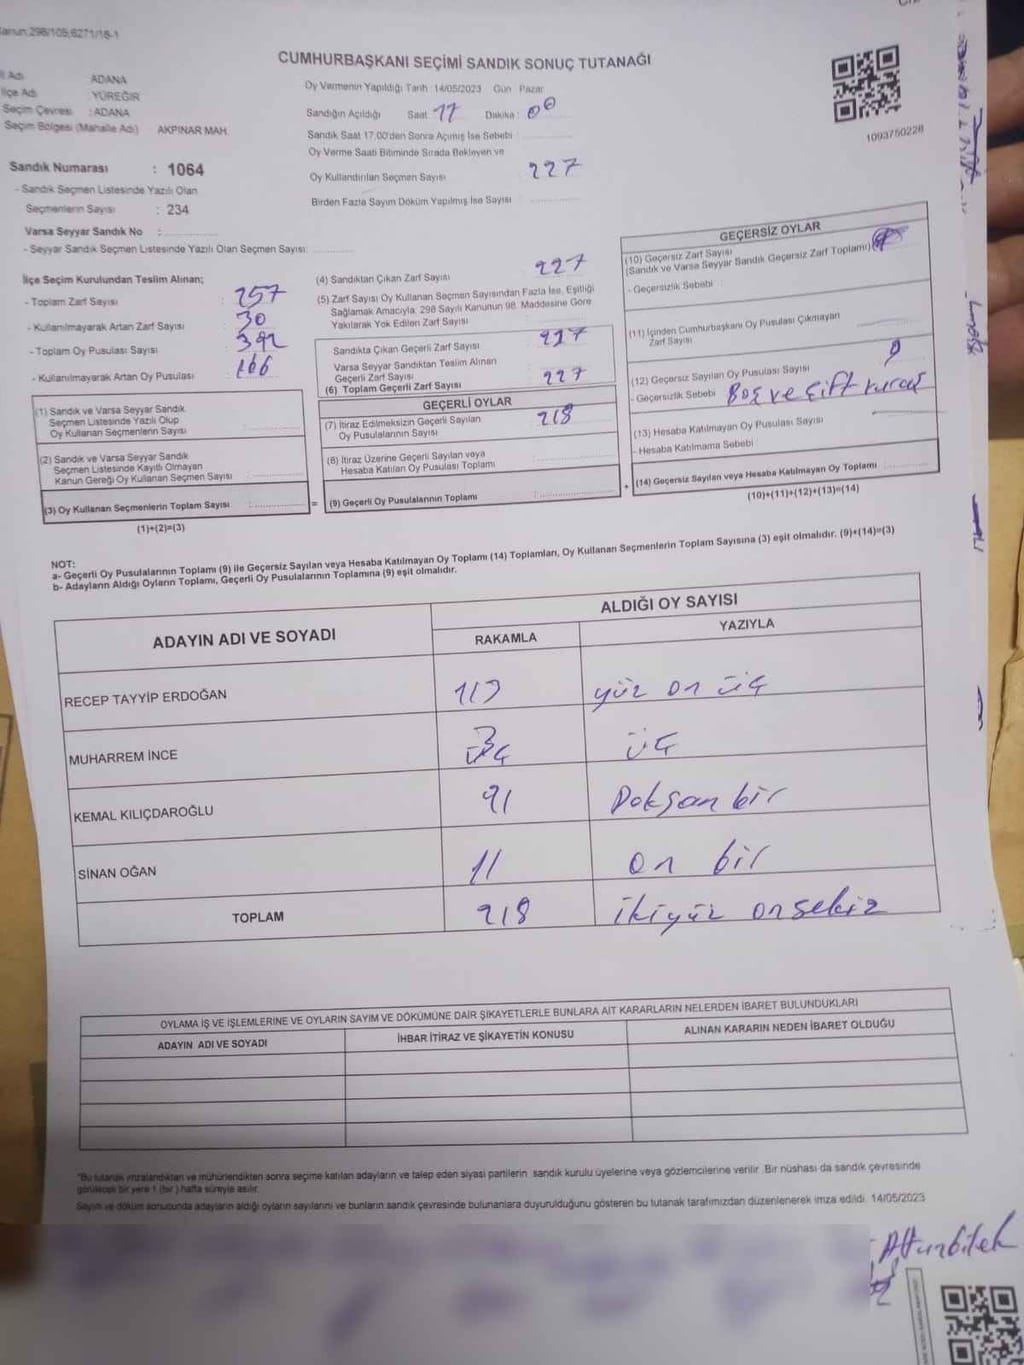 CUMHURBAŞKANI SEÇİMİ SANDIK SONUÇ TUTANAĞI
ADANA
İlçe Adı : YÜREĞİR
Seçim Çevresi : ADANA
Seçim Bölgesi (Mahalle Adı) AKPINAR MAH.
Sandık Numarası : 1064
- Sandık Seçmen Listesinde Yazılı Olan
Seçmenlerin Sayısı : 234
Varsa Seyyar Sandık No :
- Seyyar Sandık Seçmen Listesinde Yazılı Olan Seçmen Sayısı:
Oy Vermenin Yapıldığı Tarih 14/05/2023 Gün Pazar
Sandığın Açıldığı Saat 17 Dakika : 00
Sandık Saat 17.00'den Sonra Açımış İse Sebebi :
Oy Verme Saati Bitiminde Sırada Bekleyen ve
Oy Kullandırılan Seçmen Sayısı 227
Birden Fazla Sayım Döküm Yapılmış İse Sayısı
1093750228
İlçe Seçim Kurulundan Teslim Alınan;
- Toplam Zarf Sayısı : 257
- Kullanılmayarak Artan Zarf Sayısı : 30
- Toplam Oy Pusulası Sayısı : 392
- Kullanılmayarak Artan Oy Pusulası : 166
(1) Sandık ve Varsa Seyyar Sandık
Seçmen Listesinde Yazılı Olup
Oy Kullanan Seçmenlerin Sayısı
(2) Sandık ve Varsa Seyyar Sandık
Seçmen Listesinde Kayıtlı Olmayan
Kanun Gereği Oy Kullanan Seçmen Sayısı
(3) Oy Kullanan Seçmenlerin Toplam Sayısı :
(1)+(2)=(3)
(4) Sandıktan Çıkan Zarf Sayısı 227
(5) Zarf Sayısı Oy Kullanan Seçmen Sayısından Fazla İse, Eşitliği
Sağlamak Amacıyla, 298 Sayılı Kanunun 98. Maddesine Göre
Yakılarak Yok Edilen Zarf Sayısı
Sandıkta Çıkan Geçerli Zarf Sayısı 227
Varsa Seyyar Sandıktan Teslim Alınan
Geçerli Zarf Sayısı
(6) Toplam Geçerli Zarf Sayısı 227
GEÇERLİ OYLAR
(7) İtiraz Edilmeksizin Geçerli Sayılan
Oy Pusulalarının Sayısı 218
(8) İtiraz Üzerine Geçerli Sayılan veya
Hesaba Katılan Oy Pusulası Toplamı
= (9) Geçerli Oy Pusulalarının Toplamı
GEÇERSİZ OYLAR
(10) Geçersiz Zarf Sayısı
(Sandık ve Varsa Seyyar Sandık Geçersiz Zarf Toplamı)
- Geçersizlik Sebebi :
(11) İçinden Cumhurbaşkanı Oy Pusulası Çıkmayan
Zarf Sayısı
(12) Geçersiz Sayılan Oy Pusulası Sayısı 9
- Geçersizlik Sebebi Boş ve Çift
(13) Hesaba Katılmayan Oy Pusulası Sayısı
- Hesaba Katılmama Sebebi
+ (14) Geçersiz Sayılan veya Hesaba Katılmayan Oy Toplamı
(10)+(11)+(12)+(13)=(14)
NOT:
a- Geçerli Oy Pusulalarının Toplamı (9) ile Geçersiz Sayılan veya Hesaba Katılmayan Oy Toplamı (14) Toplamları, Oy Kullanan Seçmenlerin Toplam Sayısına (3) eşit olmalıdır. (9)+(14)=(3)
b- Adayların Aldığı Oyların Toplamı, Geçerli Oy Pusulalarının Toplamına (9) eşit olmalıdır.
ADAYIN ADI VE SOYADI ALDIĞI OY SAYISI
RAKAMLA YAZIYLA
RECEP TAYYİP ERDOĞAN 113 yüz on üç
MUHARREM İNCE 3 üç
KEMAL KILIÇDAROĞLU 91 Doksan bir
SİNAN OĞAN 11 on bir
TOPLAM 218 ikiyüz onsekiz
OYLAMA İŞ VE İŞLEMLERİNE VE OYLARIN SAYIM VE DÖKÜMÜNE DAİR ŞİKAYETLERLE BUNLARA AİT KARARLARIN NELERDEN İBARET BULUNDUKLARI
ADAYIN ADI VE SOYADI İHBAR İTİRAZ VE ŞİKAYETİN KONUSU ALINAN KARARIN NEDEN İBARET OLDUĞU
"Bu tutanak imzalandıktan ve mühürlendikten sonra seçime katılan adayların ve talep eden siyasi partilerin sandık kurulu üyelerine veya gözlemcilerine verilir. Bir nüshası da sandık çevresinde
görülecek bir yere 1 (bir ) hafta süreyle asılır.
Sayım ve döküm sonucunda adayların aldığı oyların sayılarını ve bunların sandık çevresinde bulunanlara duyurulduğunu gösteren bu tutanak tarafımızdan düzenlenerek imza edildi. 14/05/2023